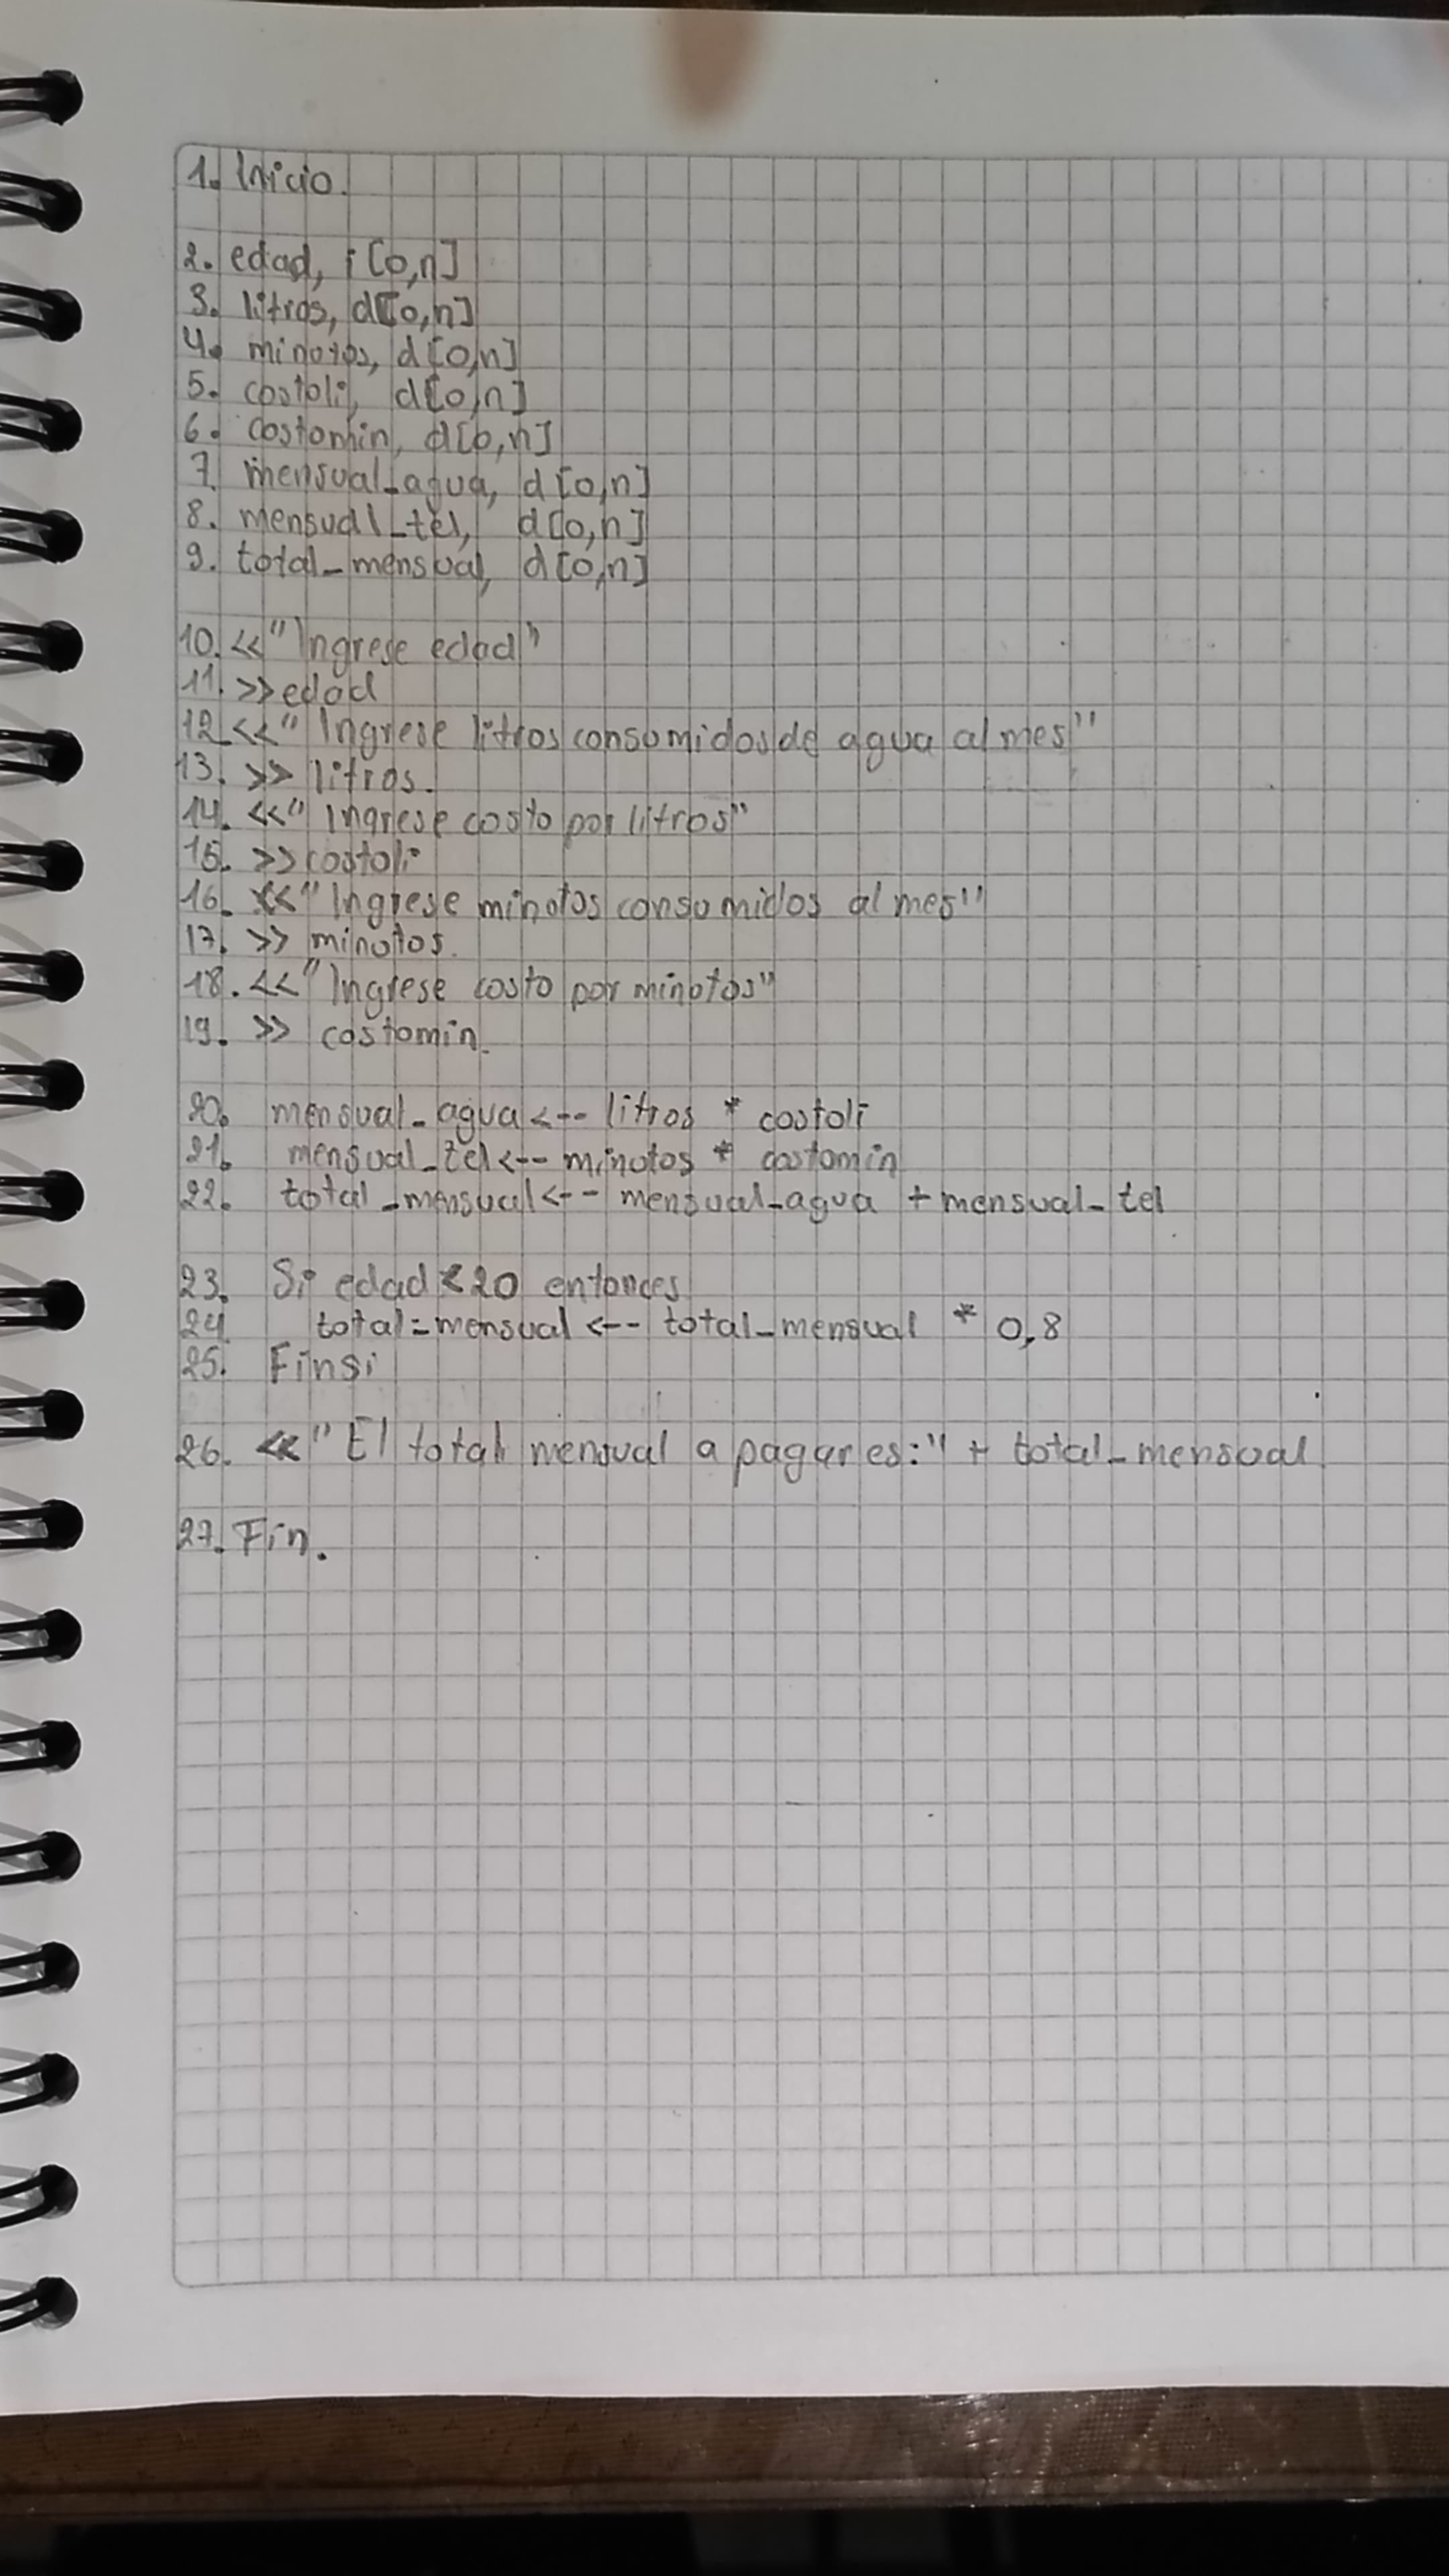 1. Inicio.
2. edad, i [0,n]
3. litros, d[0,n]
4. minutos, d[0,n]
5. costoli, d[0,n]
6. costomin, d[0,n]
7. mensual_agua, d[0,n]
8. mensual_tel, d[0,n]
9. total_mensual, d[0,n]
10. <<"Ingrese edad"
11. >>edad
12. <<"Ingrese litros consumidos de agua al mes"
13. >> litros.
14. <<"Ingrese costo por litros"
15. >>costoli
16. <<"Ingrese minutos consumidos al mes"
17. >> minutos.
18. <<"Ingrese costo por minutos"
19. >> costomin.
20. mensual_agua <-- litros * costoli
21. mensual_tel <-- minutos * costomin
22. total_mensual <-- mensual_agua + mensual_tel
23. Si edad < 20 entonces
24 total_mensual <-- total_mensual * 0,8
25. Finsi
26. <<"El total mensual a pagar es:" + total_mensual
27. Fin.